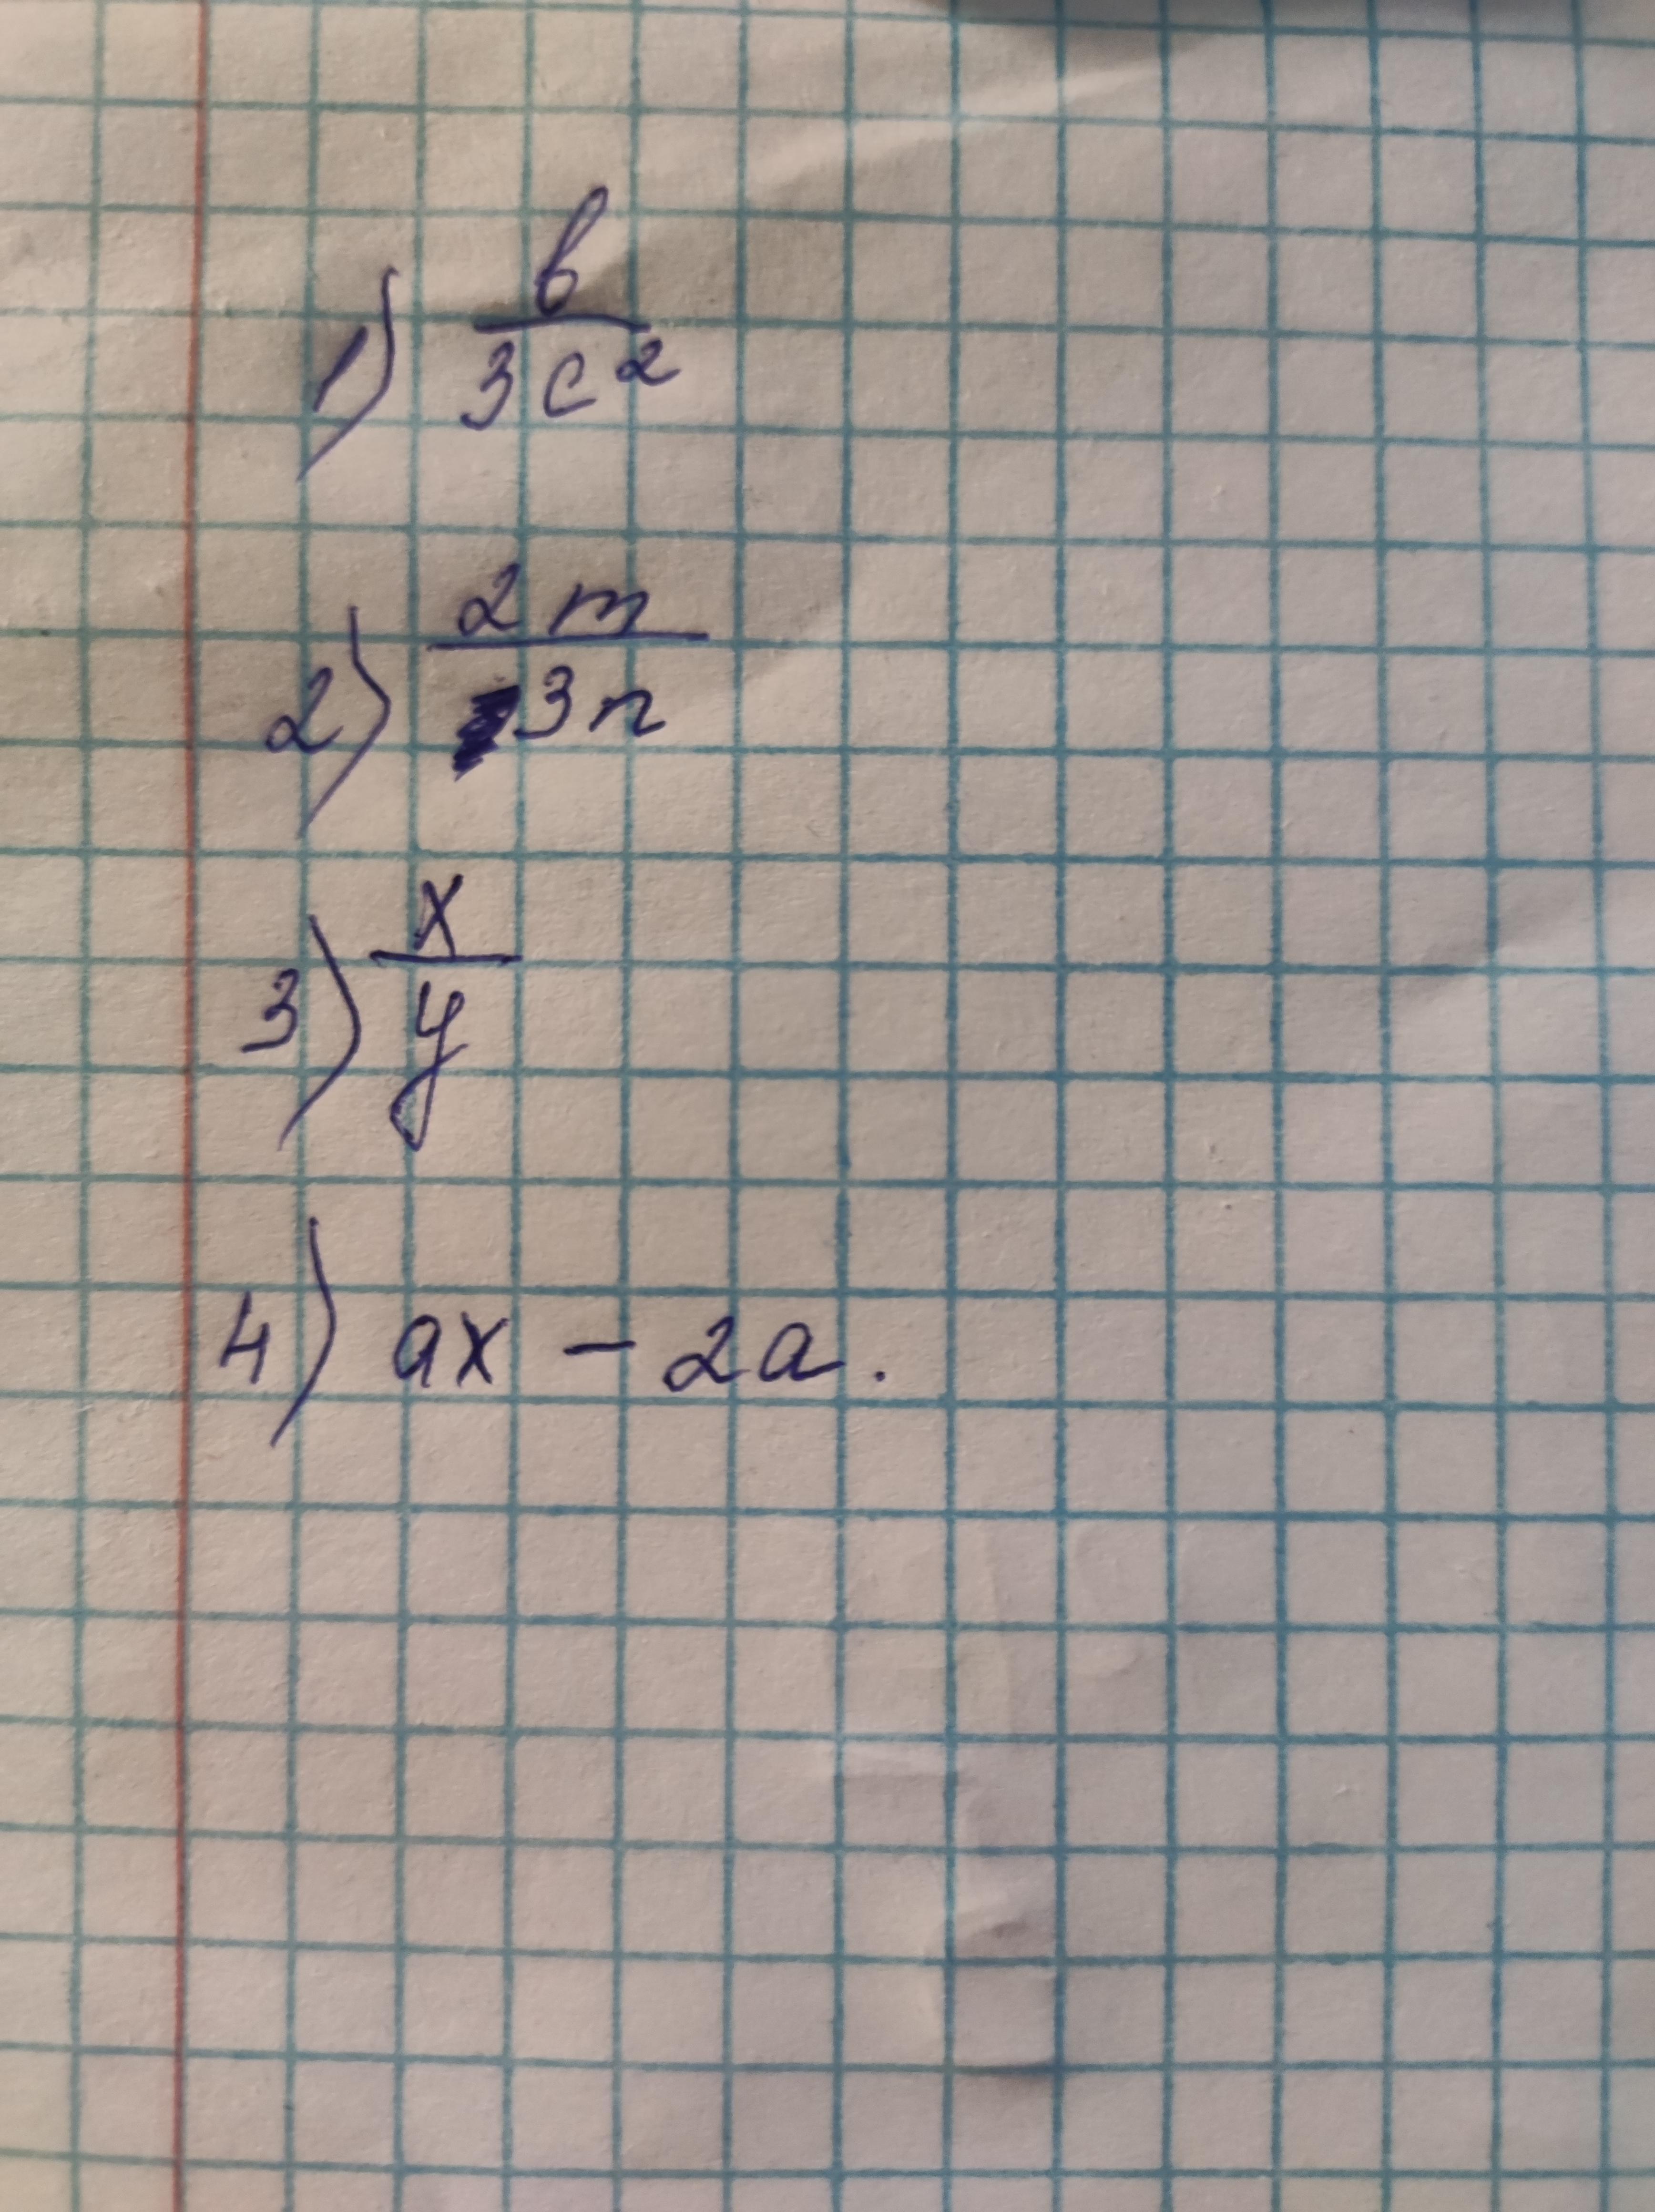 1) b/3c²
2) 2m/3n
3) x/y
4) ax - 2a.